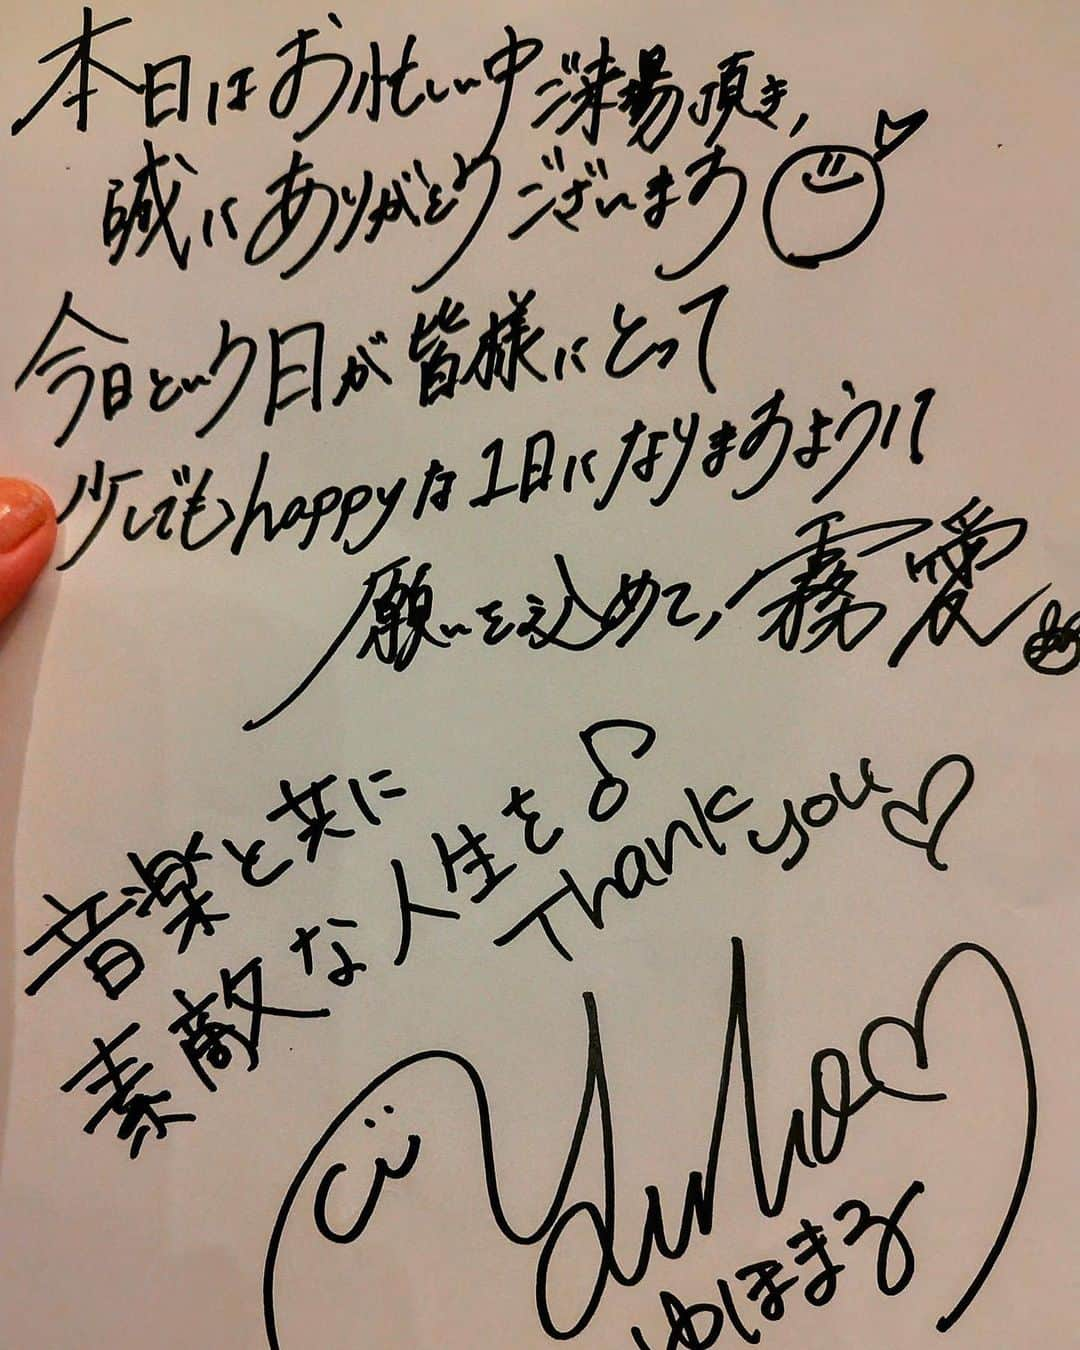 本日はお忙しい中ご来場頂き,
誠にありがとうございます
今日という日が皆様にとって
少しでもhappyな1日になりますように
願いを込めて, 霧愛
音楽と共に
素敵な人生を♪
Thank you♡
Yuho
ゆほまる